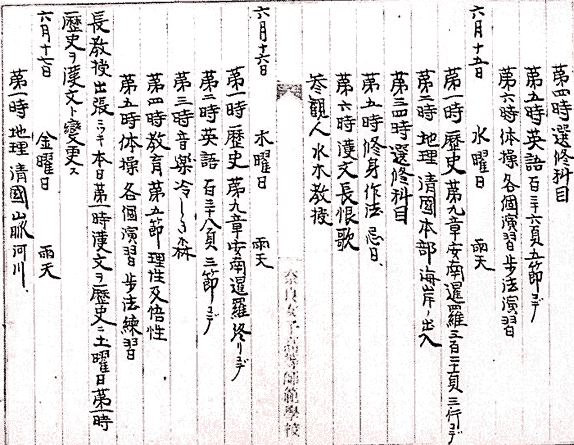 第四時選修科目
第五時英語百三十六頁五節マデ
第六時体操各個演習歩法演習
六月十五日 水曜日 雨天
第一時歴史第九章安南暹羅三百二十頁三行マデ
第二時地理清國本部海岸ノ出入
第三四時選修科目
第五時修身作法忌日、
第六時漢文長恨歌
参観人水木教授
奈良女子高等師範學校
六月十六日 木曜日 雨天
第一時歴史第九章安南暹羅終リマデ
第二時英語百三十八頁三節マデ
第三時音樂冷しき森
第四時教育第五節理性及悟性
第五時体操各個演習歩法練習
長教授出張ニツキ本日第一時漢文ヲ歴史ニ土曜日第一時
歴史ヲ漢文ト變更ス
六月十七日 金曜日 雨天
第一時地理清國山脈河川、